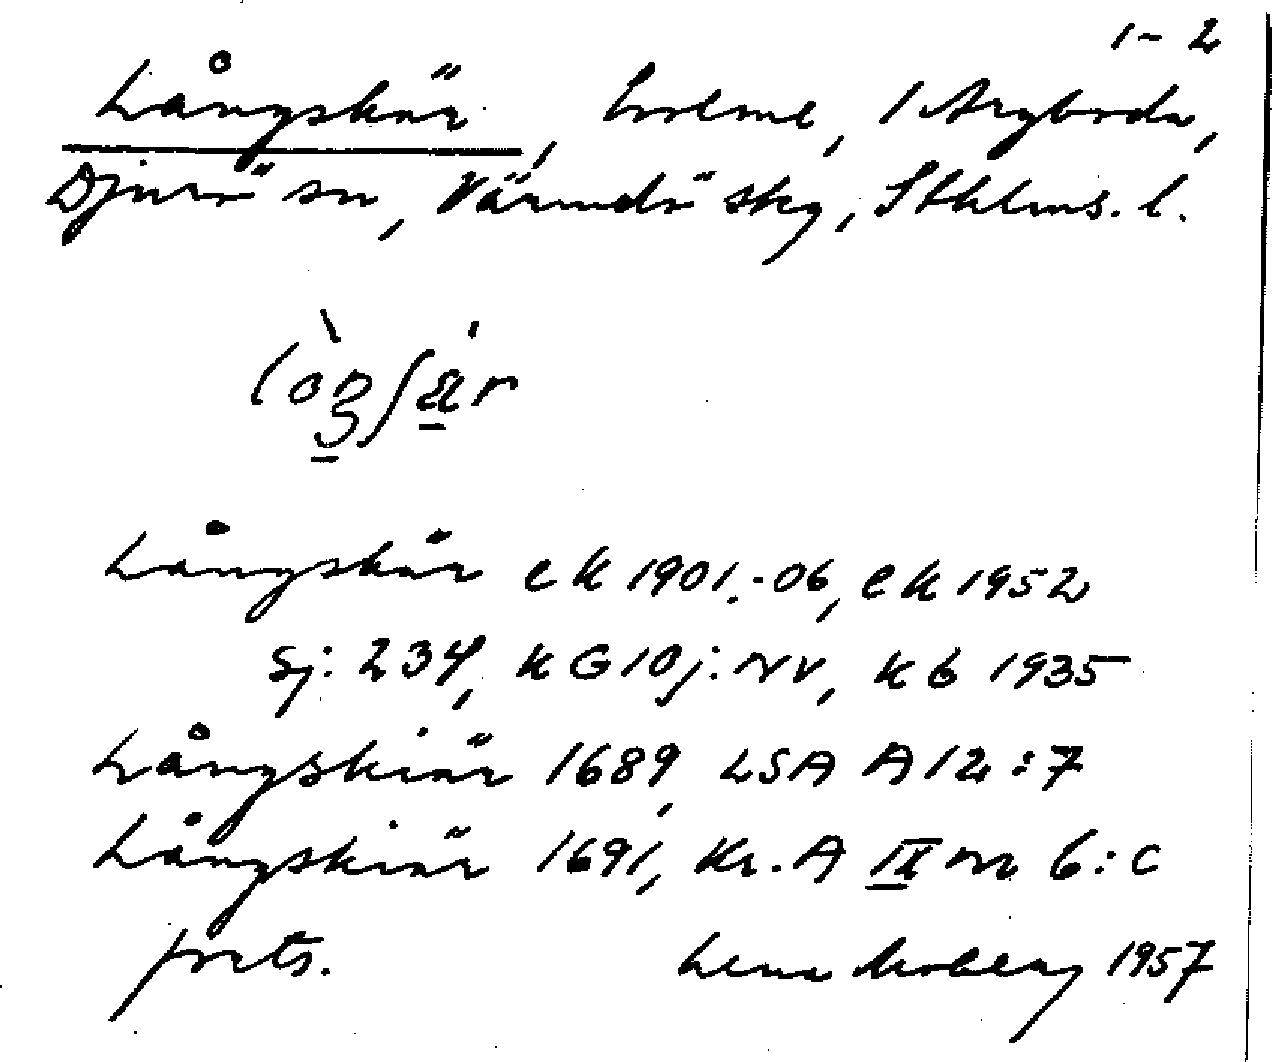 1-2
Långskär, holme, i Aspboda,
Djurö sn, Värmdö skg, Sthlms. l.
Långskär ek 1901-06, ek 1952
Sj: 234, K G 10 j: NV, Kb 1935
Långskiär 1689, LSA A 12:7
Långskiär 1691, Kr. A IX nr 6:c
forts. Lena Moberg 1957